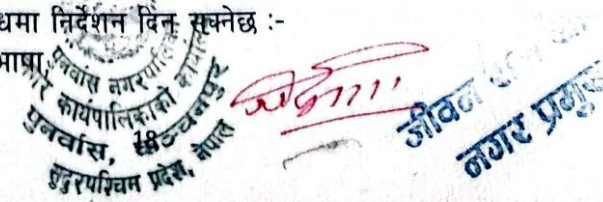 धमा निर्देशन दिन सक्नेछ :-
भाषा
पुनर्वास नगरपालिका
नगर कार्यपालिकाको कार्यालय
पुनर्वास, कञ्चनपुर
सुदुरपश्चिम प्रदेश, नेपाल
18
जीवन
नगर प्रमुख